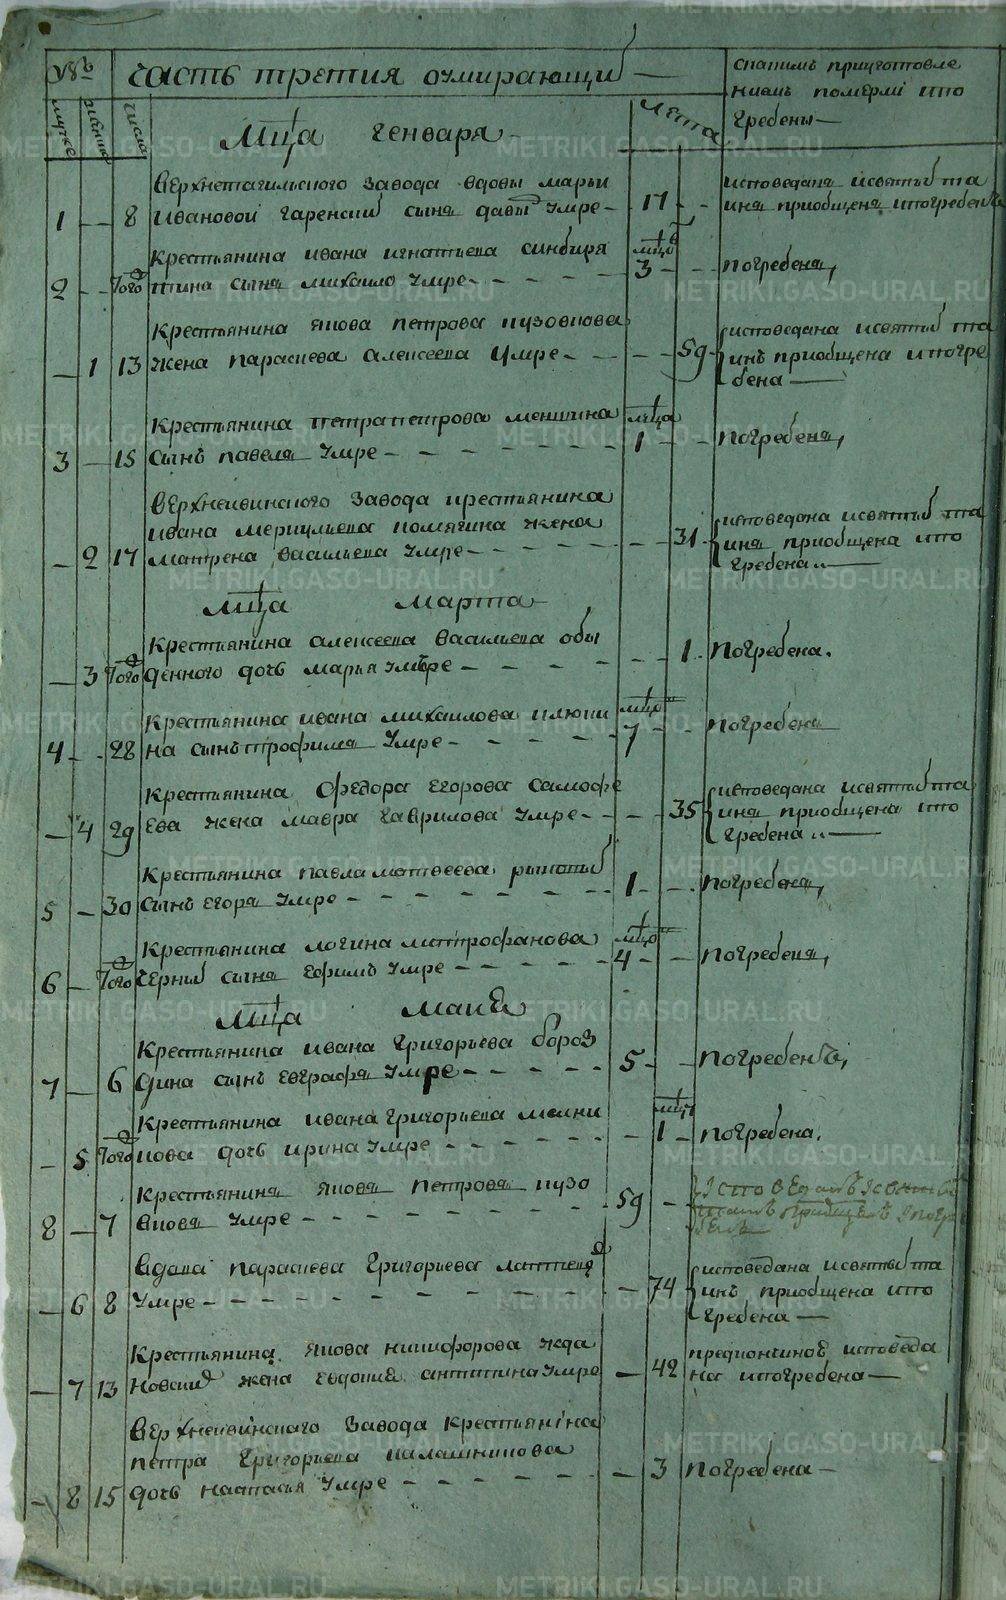 №
Часть третия оумирающи
с каким приуготовле
нием померли и по
гребены
мужск
женск
числа
лѣта
Мца Генваря
верхнетагильского завода вдовы марьи
1 8 ивановой сына давы умре 17
исповедана и святы та
ина приобщена и погребенъ
крестьянина ивана игнатьева синбиря
2 того ткина сына михаило умре мцов 3 погребена
крестьянина якова петрова пузовкова
1 13 жена параскева алексеева умре 59
исповедана и святы та
инъ приобщена и погре
бена
крестьянина петра петрова меншина
3 15 сынъ павела умре мца 1 погребена
верхнеивинского завода крестьянина
ивана меркульева помягина жена
2 17 матрена васильева умре 31
исповедана и святы та
ина приобщена и по
гребена
мца марта
крестьянина алексеева васильева обы
3 того денного дочь марья умре 1 погребена.
крестьянина ивана михаилова клюки
4 28 на сынъ трофима умре мцов 7 погребена
крестьянина федора егорова самофе
4 29 ева жена мавра гаврилова умре 35
исповедана и святы та
ина приобщена и по
гребена
крестьянина павла матвеева
5 30 сынъ егора умре 1 погребена
крестьянина логина митрофанова
6 того черны сына ефимъ умре мцов 4 погребена
мца маия
крестьянина ивана григорьева бороз
7 6 дина сынъ евграфа умре 5 погребенъ
крестьянина ивана григорьева мелни
5 того кова дочь ирина умре мцы 1 погребена.
крестьянина якова петрова пузо
8 7 вкова умре 59
вдова параскева григорьева
6 8 умре 74
исповедана и святы та
инъ приобщена и по
гребена
крестьянина якова никифорова жда
7 13 новски жена евдокия антипина умре 42
исповеда
на и погребена
верхнеивинскаго завода крестьянина
петра григорьева калашникова
8 15 дочь настасья умре 3 погребена
METRIKI.GASO-URAL.RU